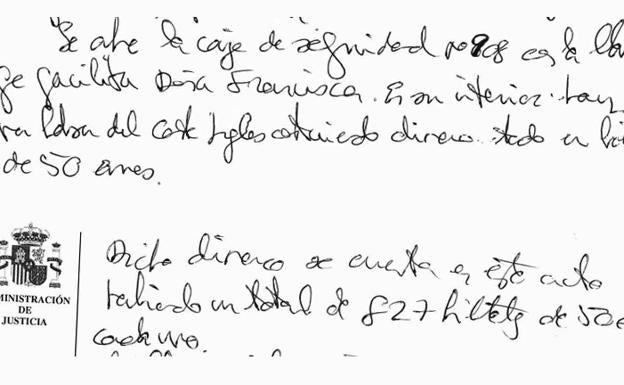 Se abre la caja de seguridad nº 908 con la lla
ge facilita Doña Francisca. En su interior hay
una bolsa del Corte Ingles conteniendo dinero todo en bi
de 50 euros.
Dicho dinero se cuenta en este acto
habiendo un total de 827 billetes de 50 e
cada uno.
MINISTRACIÓN
DE
JUSTICIA